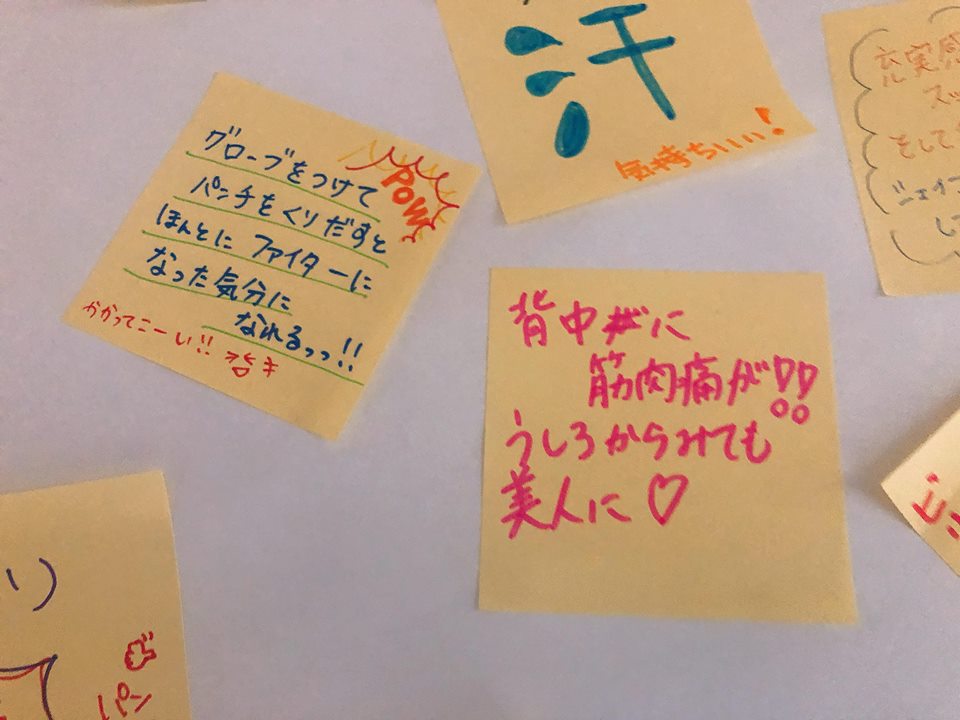 汗
気持ちいい!
グローブをつけて
パンチをくりだすと
ほんとに ファイターに
なった気分に
なれるっっ!!
かかってこーい!!
POW
背中に
筋肉痛が!!
うしろからみても
美人に♡
充実感
スッ
そして
ジェイ
して
い)
パン